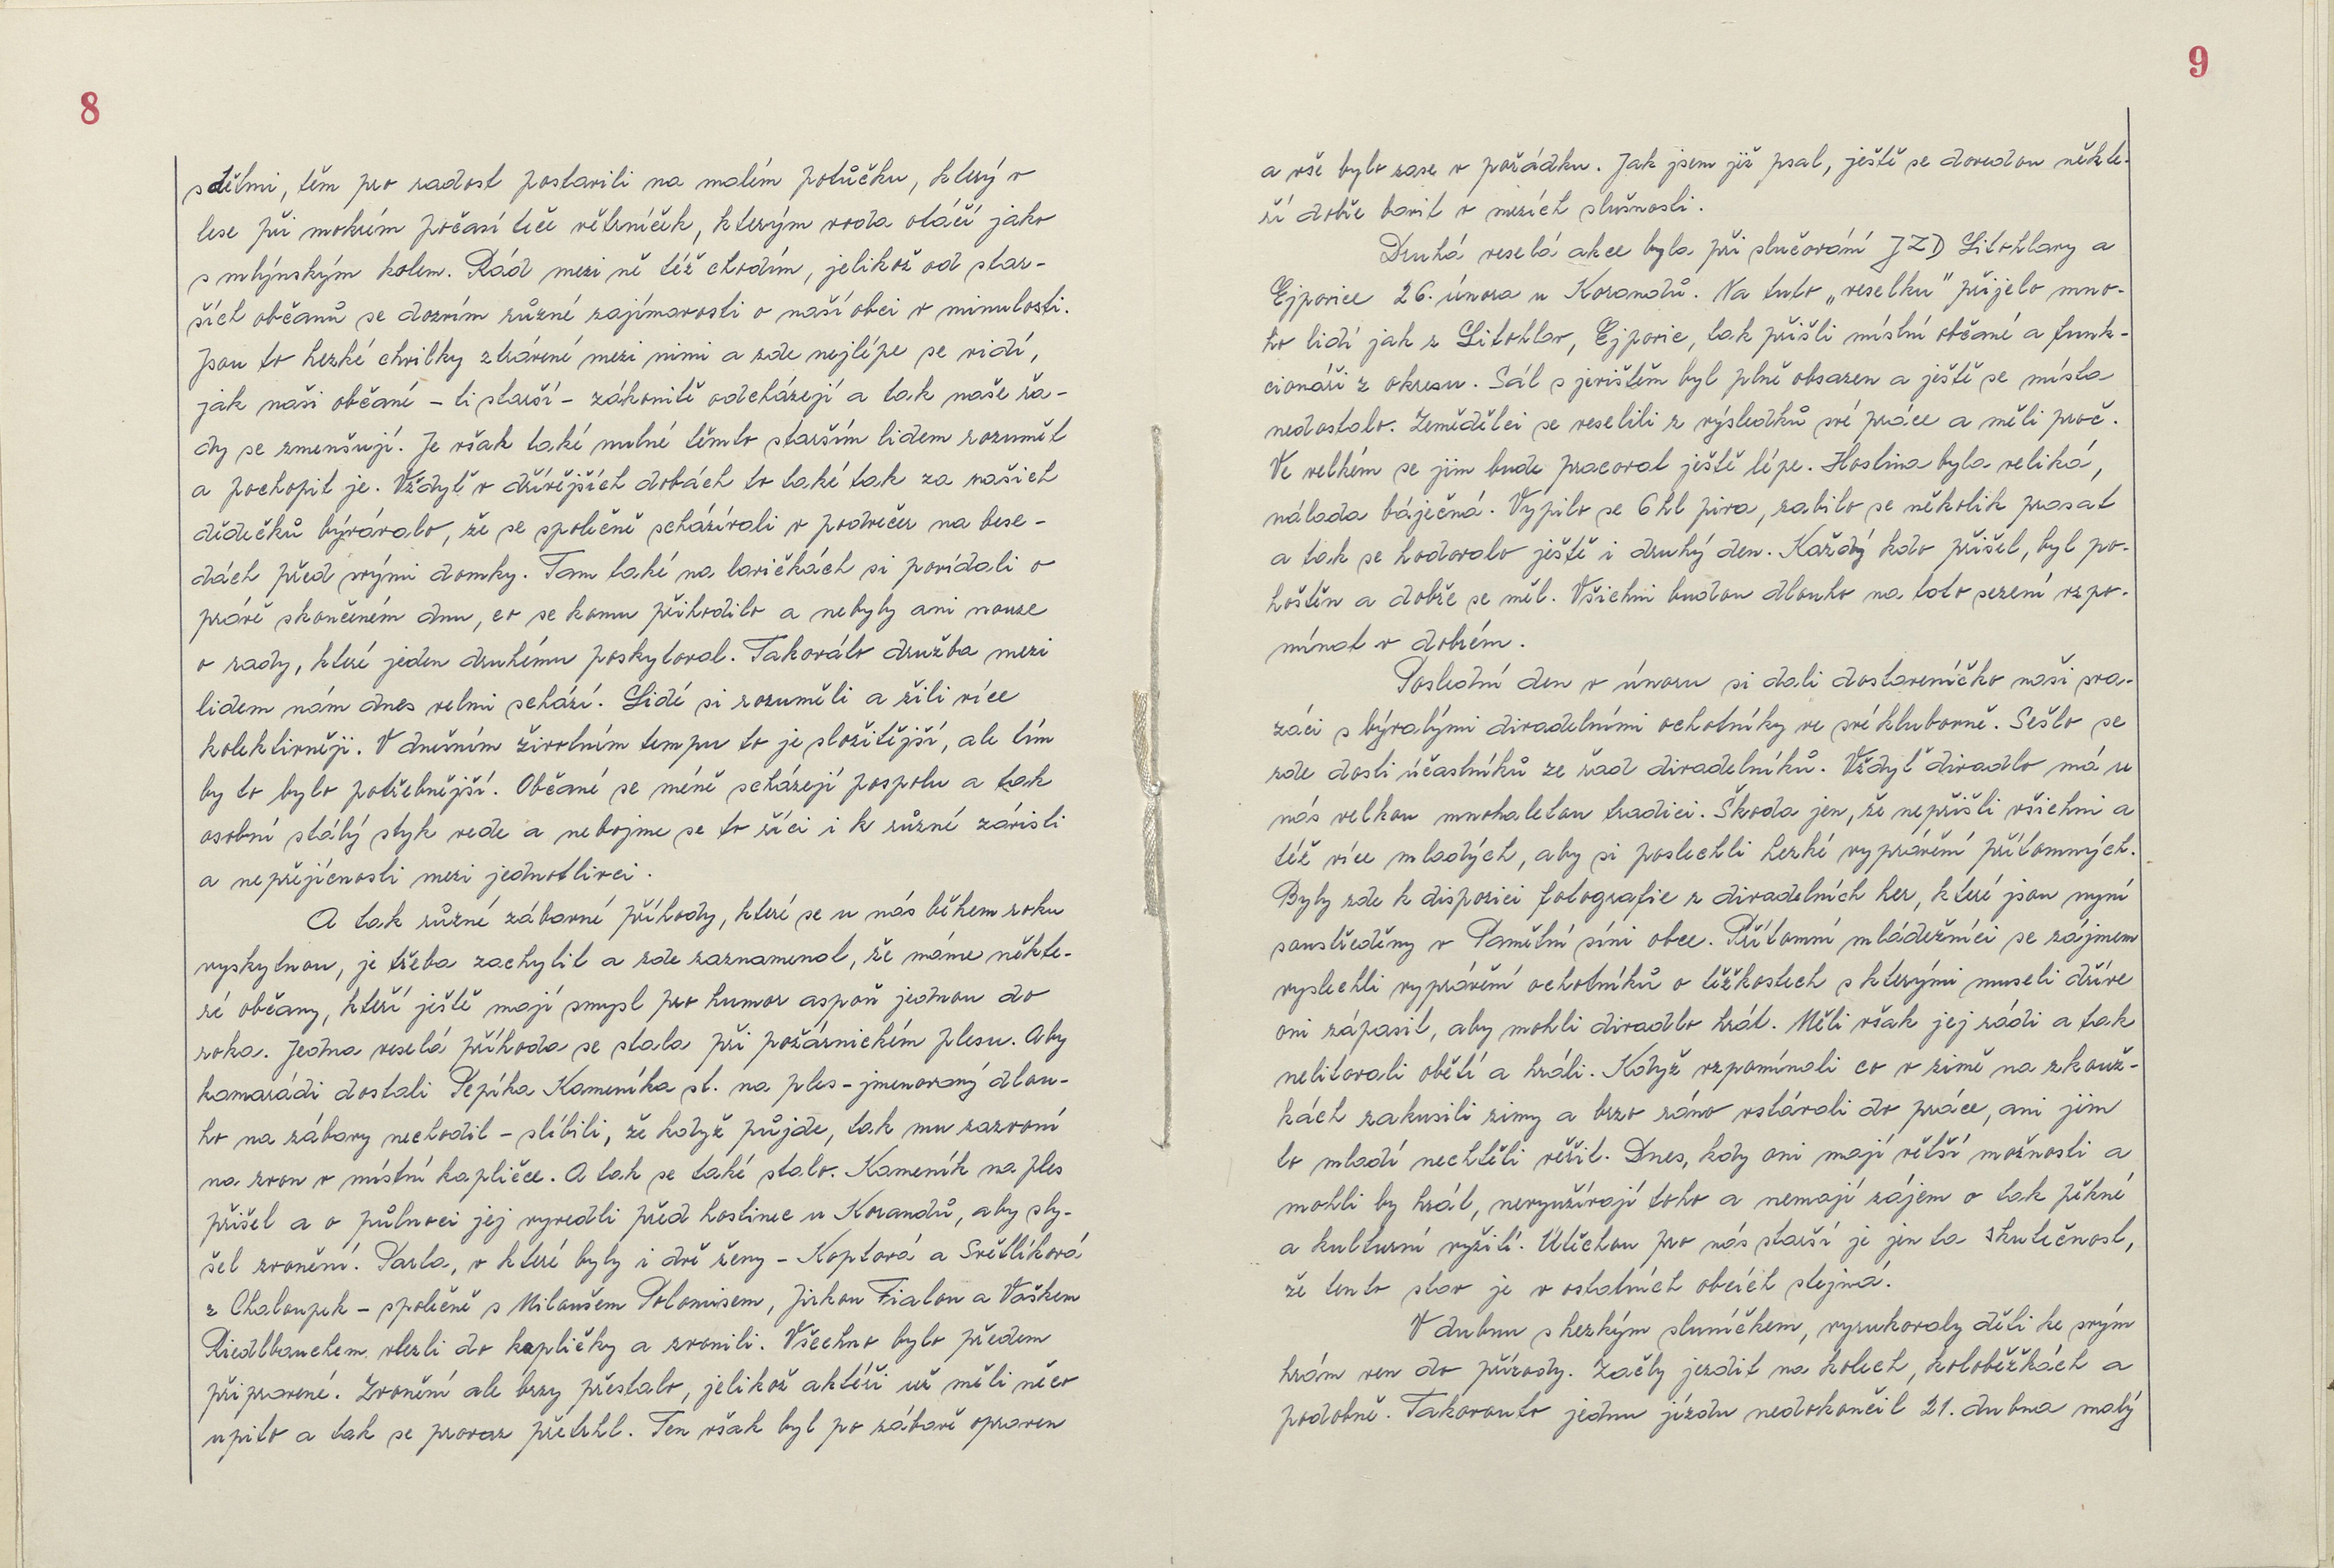 8
s dětmi, těm pro radost postavili na malém potůčku, který v
lese při mokrém počasí teče větrníček, kterým voda otáčí jako
s mlýnským kolem. Rád mezi ně též chodím, jelikož od star-
ších občanů se dozvím různé zajímavosti o naší obci v minulosti.
Jsou to hezké chvilky ztrávené mezi nimi a zde nejlépe se vidí,
jak naši občané – ti starší – zákonitě odcházejí a tak naše řa-
dy se zmenšují. Je však také nutné těmto starším lidem rozumět
a pochopit je. Vždyť v dřívějších dobách to také tak za našich
dědečků bývávalo, že se společně scházívali v podvečer na bese-
dách před svými domky. Tam také na lavičkách si povídali o
právě skončeném dnu, co se komu přihodilo a nebyly ani nouze
o rady, které jeden druhému poskytoval. Takováto družba mezi
lidem nám dnes velmi schází. Lidé si rozuměli a žili více
kolektivněji. V dnešním životním tempu to je složitější, ale tím
by to bylo potřebnější. Občané se méně scházejí pospolu a tak
osobní stálý styk vede a nebojme se to říci i k různé závisti
a nepřejícnosti mezi jednotlivci.
A tak různé zábavné příhody, které se u nás během roku
vyskytnou, je třeba zachytit a zde zaznamenat, že máme někte-
ré občany, kteří ještě mají smysl pro humor aspoň jednou do
roka. Jedna veselá příhoda se stala při požárnickém plesu. Aby
kamarádi dostali Pepíka Kameníka st. na ples – jmenovaný dlou-
ho na zábavy nechodil – slíbili, že když půjde, tak mu zazvoní
na zvon v místní kapličce. A tak se také stalo. Kameník na ples
přišel a o půlnoci jej vyvedli před hostinec u Korandů, aby sly-
šel zvonění. Parta, v které byly i dvě ženy – Koptová a Světlíková
z Chaloupek – společně s Miloušem Polomisem, Jirkou Fialou a Vaškem
Riedlbauchem vlezli do kapličky a zvonili. Všechno bylo předem
připravené. Zvonění ale brzy přestalo, jelikož aktéři už měli něco
upito a tak se provaz přetrhl. Ten však byl po zábavě opraven
9
a vše bylo zase v pořádku. Jak jsem již psal, ještě se dovedou někte-
ří dobře bavit v mezích slušnosti.
Druhá veselá akce byla při slučování JZD Litohlavy a
Ejpovice 26. února u Korandů. Na tuto „veselku" přijelo mno-
ho lidí jak z Litohlav, Ejpovic, tak přišli místní občané a funk-
cionáři z okresu. Sál s jevištěm byl plně obsazen a ještě se místa
nedostalo. Zemědělci se veselili z výsledků své práce a měli proč.
Ve velkém se jim bude pracovat ještě lépe. Hostina byla veliká,
nálada báječná. Vypilo se 6 hl piva, zabilo se několik prasat
a tak se hodovalo ještě i druhý den. Každý kdo přišel, byl po-
hoštěn a dobře se měl. Všichni budou dlouho na toto sezení vzpo-
mínat v dobrém.
Poslední den v únoru si dali dostaveníčko naši sva-
záci s bývalými divadelními ochotníky ve své klubovně. Sešlo se
zde dosti účastníků ze řad divadelníků. Vždyť divadlo má u
nás velkou mnohaletou tradici. Škoda jen, že nepřišli všichni a
též více mladých, aby si poslechli hezké vyprávění přítomných.
Byly zde k dispozici fotografie z divadelních her, které jsou nyní
soustředěny v Pamětní síni obce. Přítomní mládežníci se zájmem
vyslechli vyprávění ochotníků o těžkostech s kterými museli dříve
oni zápasit, aby mohli divadlo hrát. Měli však jej rádi a tak
nelitovali obětí a hráli. Když vzpomínali co v zimě na zkouš-
kách zakusili zimy a brzo ráno vstávali do práce, ani jim
to mladí nechtěli věřit. Dnes, kdy oni mají větší možnosti a
mohli by hrát, nevyužívají toho a nemají zájem o tak pěkné
a kulturní vyžití. Útěchou pro nás starší je jen ta skutečnost,
že tento stav je v ostatních obcích stejná.
V dubnu s hezkým sluníčkem, vyrukovaly děti ke svým
hrám ven do přírody. Začly jezdit na kolech, koloběžkách a
podobně. Takovouto jednu jízdu nedokončil 21. dubna malý